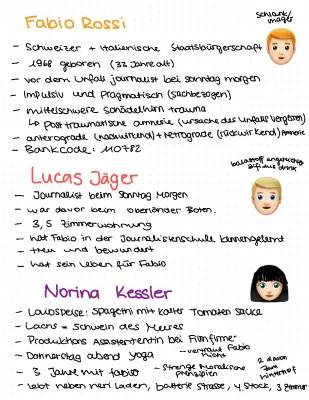 Fabio Rossi
schlank/
mager
- Schweizer + Italienische Staatsbürgerschaft
- 1968 geboren (32 Jahre alt)
- vor dem Unfall Journalist bei Sonntag morgen
- Impulsiv und Pragmatisch (sachbezogen)
- mittelschwere Schädelhirn trauma
↳ Posttraumatische amnesie (ursache des Unfalls vergessen)
- anterograde (nachwirkend) + Retrograde (rückwirkend) Amnesie
- Bankcode: 110782
Lucas Jäger
- Journalist beim Sonntag Morgen
- war davor beim oberländer Boten.
- 3,5 Zimmerwohnung
- hat Fabio in der Journalistenschule kennengelernt
- treu und bewundert
- hat sein Leben für Fabio
Norina Kessler
- Lieblingsspeise: Spagetti mit kalter Tomaten sauce
- Lachs = Schwein des Meeres
- Produktions Assistentin bei Filmfirma
- vertraut Fabio
nicht
- Donnerstag abend Yoga
- Strenge Moralische
Prinzipien
- 3 Jahre mit Fabio
2 davon
zum
hinterhof
- lebt neben nem Laden, strasse, 4. Stock, 3 Zimmer